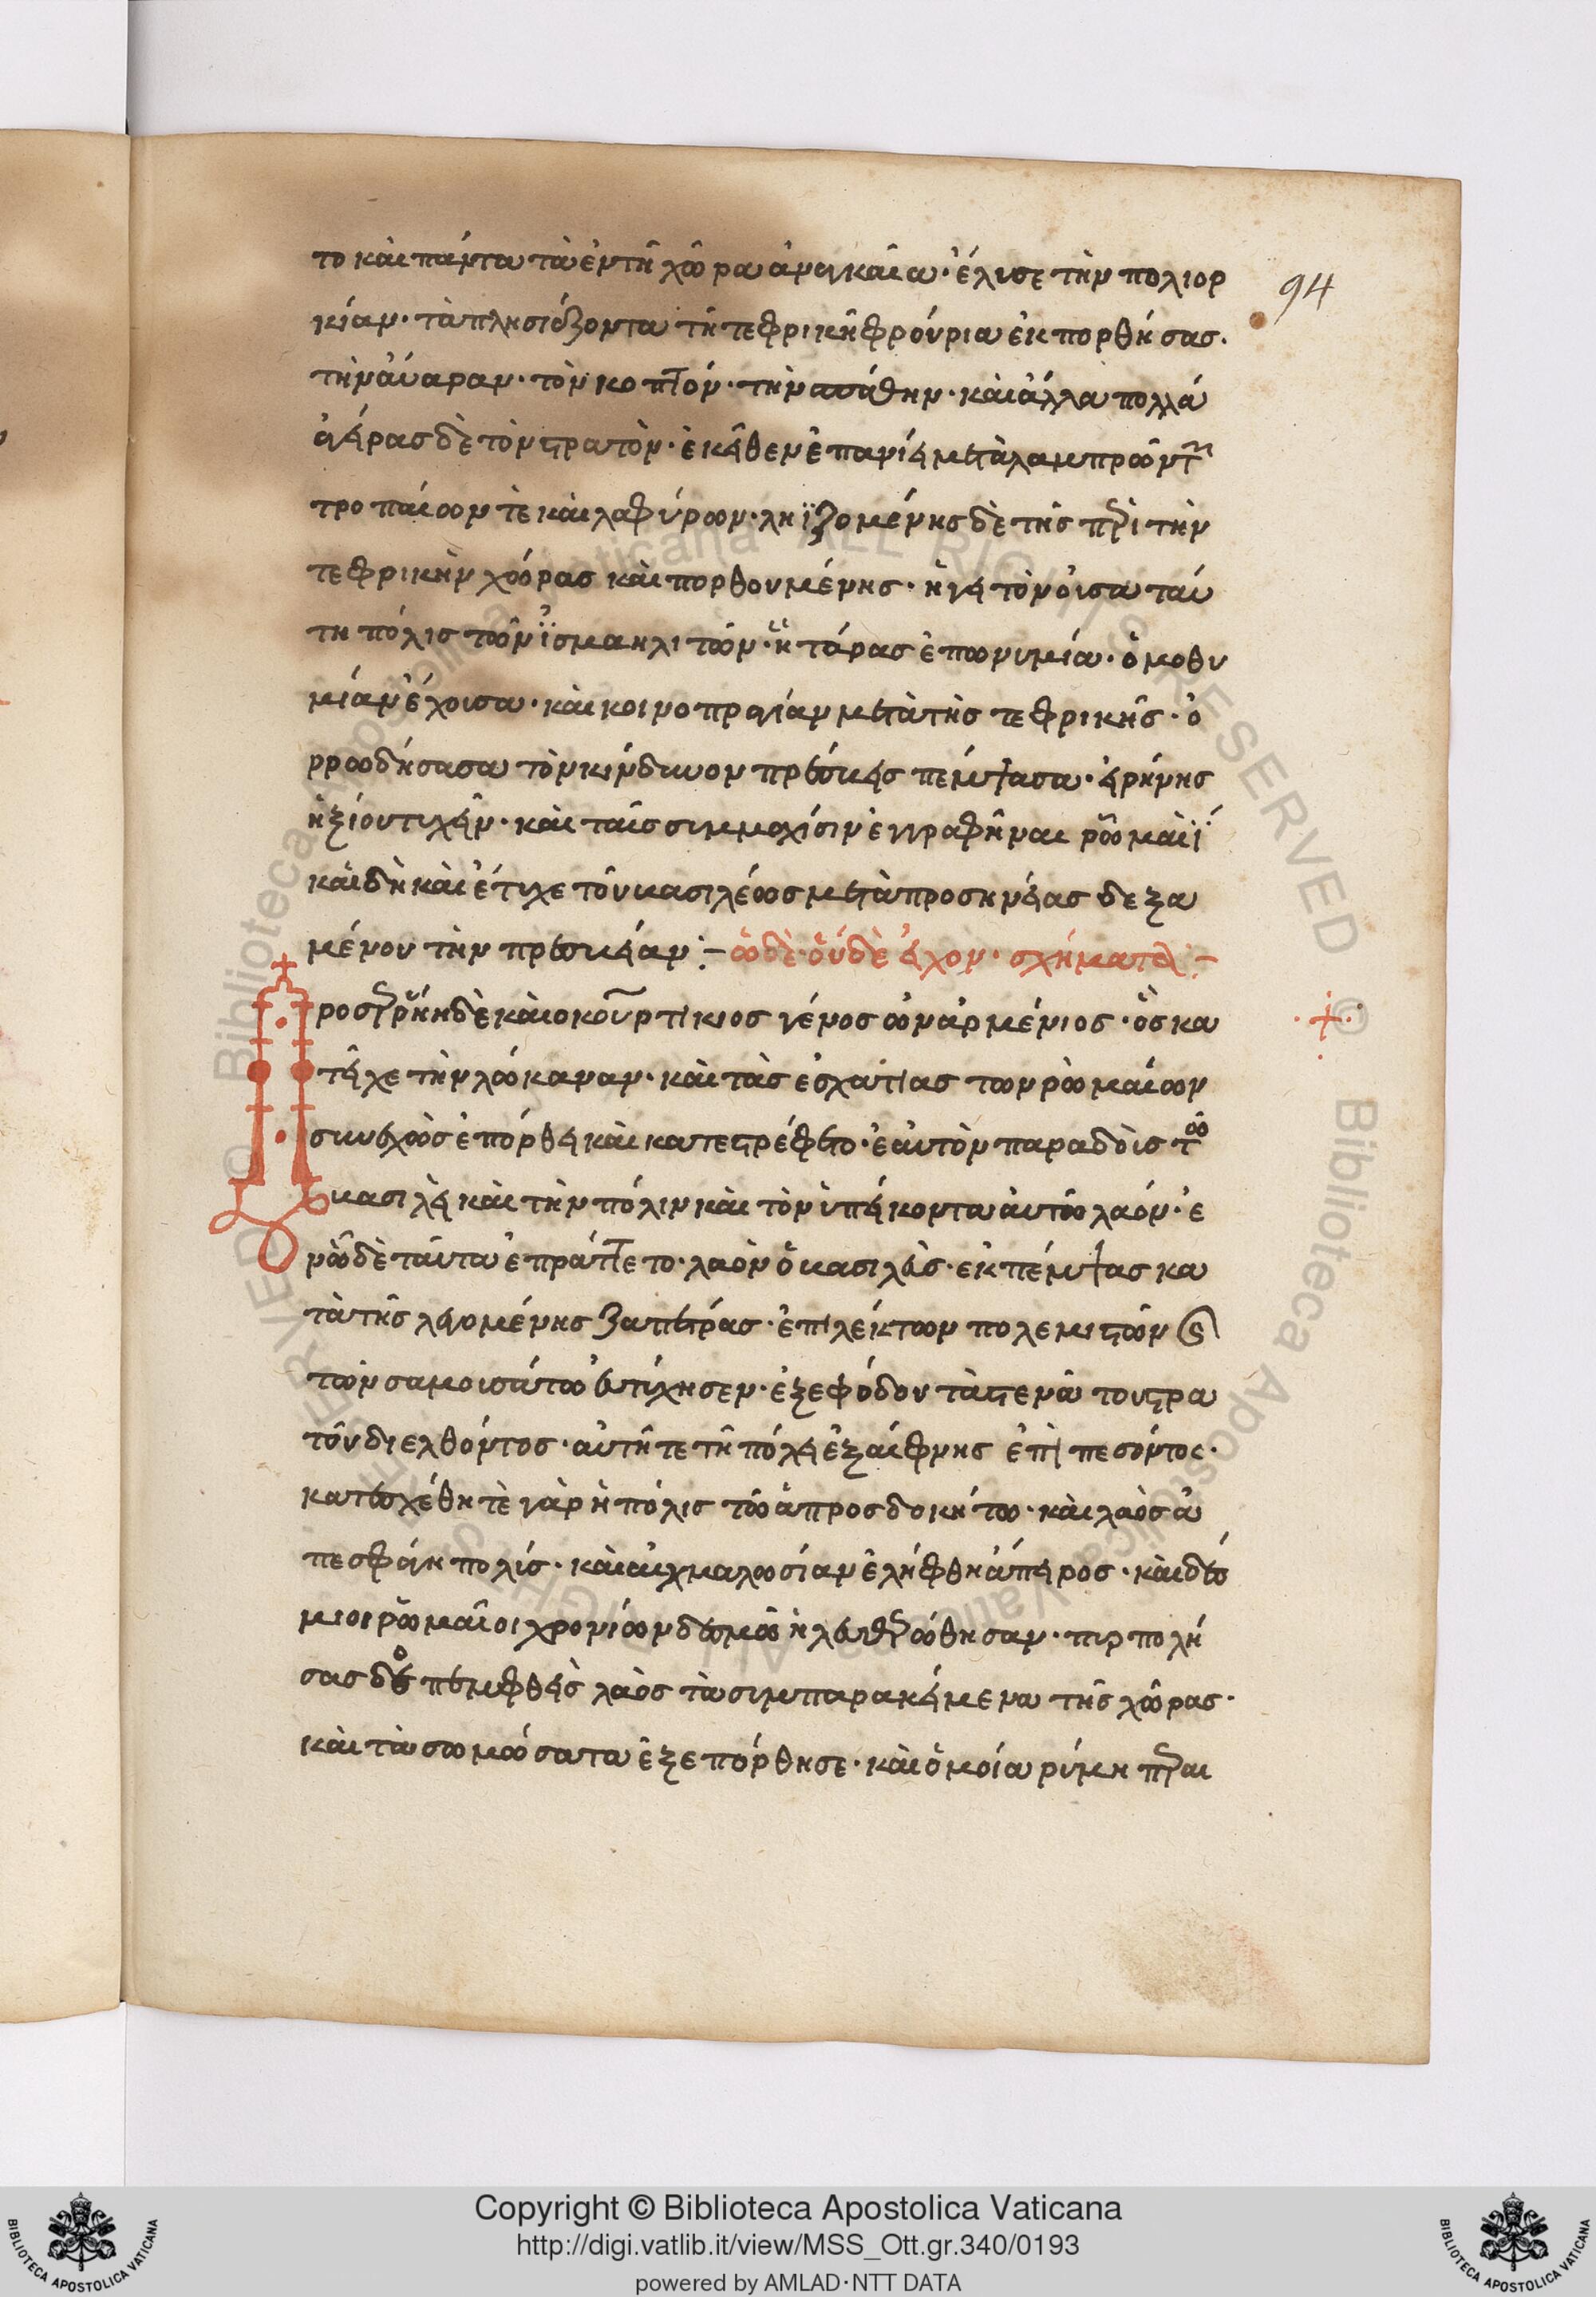 το καὶ πάντα τὰ ἐν τῆ χώρα ἀναγκαῖα· ἔλυσε τὴν πολιορ
94
κίαν· τὰ πλησιάζοντα τῆ τεφρικῆ φρούρια ἐκπορθήσας·
τὴν ἀύαραν· τὸν κοπτόν· τὴν σπάθην· καὶ ἄλλα πολλά
ἀγείρας δὲ τὸν στρατὸν· ἐκεῖθεν ἐπανίει μετὰ λαμπρῶν τῶν
τροπαίων τὲ καὶ λαφύρων· ληϊζομένης δὲ τῆς περὶ τὴν
τεφρικὴν χώρας καὶ πορθουμένης· ἡ γειτονοῦσα ταύ
τη πόλις τῶν ϊσμαηλιτῶν· ἧ τάρας ἐπωνυμία· ὁμοθυ
μίαν ἔχουσα· καὶ κοινοπραγίαν μετὰ τῆς τεφρικῆς· ὀ
ρρωδήσασα τὸν κίνδυνον πρέσβεις πέμψασα· εἰρήνης
ἠξίου τυχεῖν· καὶ ταῖς συμμαχίσιν ἐγγραφῆναι ῥωμαϊ
καὶ δὴ καὶ ἔτυχε τοῦ βασιλέως μετὰ προσηνείας δεξα
μένου τὴν πρεσβείαν :- ὧδε οὐδὲ εἶχον· σχήματει :-
Προσερρύη δὲ καὶ ὁ κουρτίκιος γένος ὢν ἀρμένιος· ὃς κα
τεῖχε τὴν λώκαναν· καὶ τὰς ἐσχατιὰς τῶν ῥωμαίων
συνεχῶς ἐπόρθει καὶ κατεστρέφετο· ἑαυτὸν παραδοὺς τῶ
βασιλεῖ καὶ τὴν πόλιν καὶ τὸν ὑπείκοντα αὐτῶ λαόν· ἐ
νῶ δὲ ταῦτα ἐπράττετο· λαὸν ὁ βασιλεὺς ἐκπέμψας κα
τὰ τῆς λεγομένης ζαπετρας· ἐπιλέκτων πολεμιστῶν καὶ
τῶν σαμουσάτω εὐτύχησεν· ἐξεφόδου τὰ στενὰ τοῦ στρα
τοῦ διελθόντος· αὐτῆ τε τῆ πόλει ἐξαίφνης ἐπιπεσόντος·
κατεσχέθη τὲ γὰρ ἡ πόλις τῶ ἀπροσδοκήτω· καὶ λαὸς ἀ
πεσφάγη πολύς· καὶ αἰχμαλωσίαν ἐλήφθη ἄπειρος· καὶ δέσ
μιοι ῥωμαῖοι χρονίων δεσμῶ ἠλευθερώθησαν· πυρπολή
σας δὲ ὁ πεμφθεὶς λαὸς τὰ συμπαρακείμενα τῆς χώρας·
καὶ τὰ σωμώσατα ἐξεπόρθησε· καὶ ὁμοία ρύμη περαι
Copyright © Biblioteca Apostolica Vaticana
http://digi.vatlib.it/view/MSS_Ott.gr.340/0193
powered by AMLAD·NTT DATA